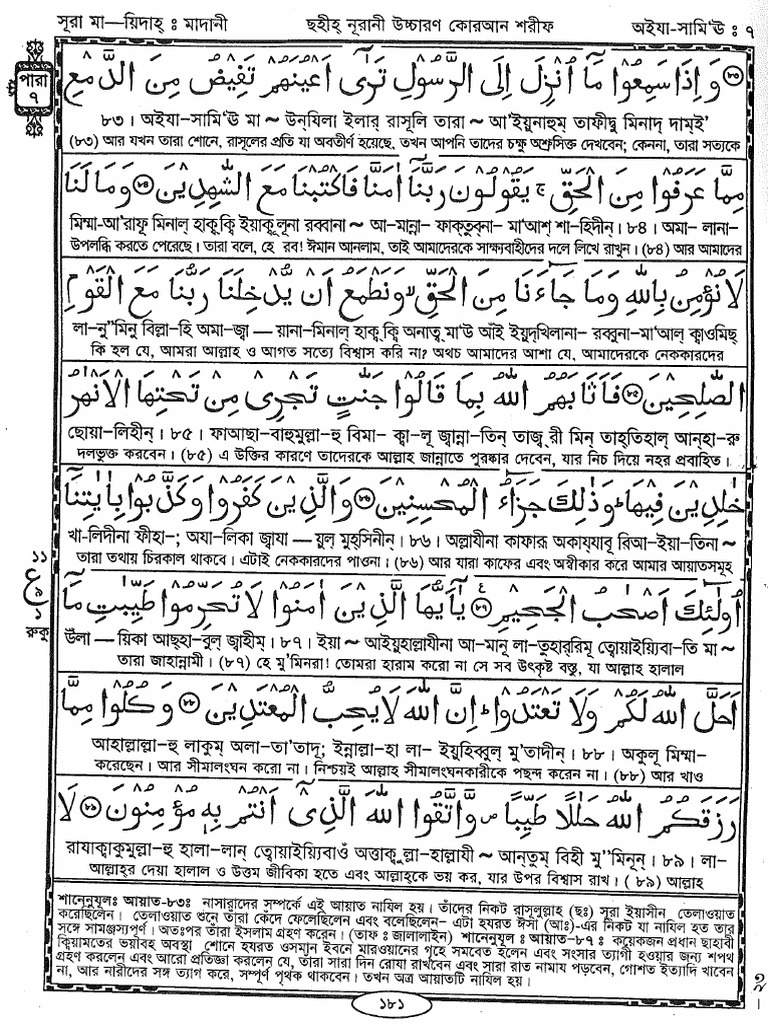 সূরা মা—য়িদাহ্ ঃ মাদানী ছহীহ্ নূরানী উচ্চারণ কোরআন শরীফ অইযা-সামি'ঊ ঃ ৭
পারা
৭
وَاِذَا سَمِعُوْا مَآ اُنْزِلَ اِلَى الرَّسُوْلِ تَرٰٓى اَعْيُنَهُمْ تَفِيْضُ مِنَ الدَّمْعِ
৮৩। অইযা-সামি'ঊ মা ~ উন্‌যিলা ইলার্ রাসূলি তারা ~ আ'ইয়ুনাহুম্ তাফীদ্বু মিনাদ্ দাম্‌ই'
(৮৩) আর যখন তারা শোনে, রাসূলের প্রতি যা অবতীর্ণ হয়েছে, তখন আপনি তাদের চক্ষু অশ্রুসিক্ত দেখবেন; কেননা, তারা সত্যকে
مِمَّا عَرَفُوْا مِنَ الْحَقِّ ۚ يَقُوْلُوْنَ رَبَّنَآ اٰمَنَّا فَاكْتُبْنَا مَعَ الشّٰهِدِيْنَ ۝ وَمَا لَنَا
মিম্মা-আ'রাফূ মিনাল্ হাক্ব্‌ক্বি ইয়াক্বূলূনা রব্বানা ~ আ-মান্না- ফাক্‌তুব্‌না- মা'আশ্ শা-হিদীন্। ৮৪। অমা- লানা-
উপলব্ধি করতে পেরেছে। তারা বলে, হে রব! ঈমান আনলাম, তাই আমাদেরকে সাক্ষ্যবাহীদের দলে লিখে রাখুন। (৮৪) আর আমাদের
لَا نُؤْمِنُ بِاللّٰهِ وَمَا جَآءَنَا مِنَ الْحَقِّ ۙ وَنَطْمَعُ اَنْ يُّدْخِلَنَا رَبُّنَا مَعَ الْقَوْمِ
লা-নু"মিনু বিল্লা-হি অমা-জ্বা — য়ানা-মিনাল্ হাক্ব্ ক্বি অনাত্ব্‌মা'উ আঁই ইয়ুদ্‌খিলানা- রব্বুনা-মা'আল্ ক্বাওমিছ্
কি হল যে, আমরা আল্লাহ ও আগত সত্যে বিশ্বাস করি না? অথচ আমাদের আশা যে, আমাদেরকে নেককারদের
الصّٰلِحِيْنَ ۝ فَاَثَابَهُمُ اللّٰهُ بِمَا قَالُوْا جَنّٰتٍ تَجْرِىْ مِنْ تَحْتِهَا الْاَنْهٰرُ
ছোয়া-লিহীন্। ৮৫। ফাআছা-বাহুমুল্লা-হু বিমা- ক্বা-লূ জ্বান্না-তিন্ তাজ্ব্‌রী মিন্ তাহ্‌তিহাল্ আন্‌হা-রু
দলভুক্ত করবেন। (৮৫) এ উক্তির কারণে তাদেরকে আল্লাহ জান্নাতে পুরষ্কার দেবেন, যার নিচ দিয়ে নহর প্রবাহিত।
خٰلِدِيْنَ فِيْهَا ؕ وَذٰلِكَ جَزَآءُ الْمُحْسِنِيْنَ ۝ وَالَّذِيْنَ كَفَرُوْا وَكَذَّبُوْا بِاٰيٰتِنَآ
খা-লিদীনা ফীহা-; অযা-লিকা জ্বাযা — য়ুল্ মুহ্‌সিনীন্। ৮৬। অল্লাযীনা কাফারূ অকায্‌যাবূ রিআ-ইয়া-তিনা ~
তারা তথায় চিরকাল থাকবে। এটাই নেককারদের পাওনা। (৮৬) আর যারা কাফের এবং অস্বীকার করে আমার আয়াতসমূহ
১১
ع
৯
১
রুকু
اُولٰٓئِكَ اَصْحٰبُ الْجَحِيْمِ ۝ يٰٓاَيُّهَا الَّذِيْنَ اٰمَنُوْا لَا تُحَرِّمُوْا طَيِّبٰتِ مَآ
উলা — য়িকা আছ্‌হা-বুল্ জ্বাহীম্। ৮৭। ইয়া ~ আইয়ুহাল্লাযীনা আ-মানূ লা-তুহার্‌রিমূ ত্বোয়াইয়্যিবা-তি মা ~
তারা জাহান্নামী। (৮৭) হে মু'মিনরা! তোমরা হারাম করো না সে সব উৎকৃষ্ট বস্তু, যা আল্লাহ হালাল
اَحَلَّ اللّٰهُ لَكُمْ وَلَا تَعْتَدُوْا ؕ اِنَّ اللّٰهَ لَا يُحِبُّ الْمُعْتَدِيْنَ ۝ وَكُلُوْا مِمَّا
আহাল্লাল্লা-হু লাকুম্ অলা-তা'তাদূ; ইন্নাল্লা-হা লা- ইয়ুহিব্বুল্ মু'তাদীন্। ৮৮। অকুলূ মিম্মা-
করেছেন। আর সীমালংঘন করো না। নিশ্চয়ই আল্লাহ সীমালংঘনকারীকে পছন্দ করেন না। (৮৮) আর খাও
رَزَقَكُمُ اللّٰهُ حَلٰلًا طَيِّبًا ۪ وَّاتَّقُوا اللّٰهَ الَّذِىْٓ اَنْتُمْ بِهٖ مُؤْمِنُوْنَ ۝ لَا
রাযাক্বাকুমুল্লা-হু হালা-লান্ ত্বোয়াইয়্যিবাওঁ অত্তাক্বুল্লা-হাল্লাযী ~ আন্‌তুম্ বিহী মু"মিনূন্। ৮৯। লা-
আল্লাহ্‌র দেয়া হালাল ও উত্তম জীবিকা হতে এবং আল্লাহ্‌কে ভয় কর, যার উপর বিশ্বাস রাখ। (৮৯) আল্লাহ
শানেনুযূলঃ আয়াত-৮৩ঃ নাসারাদের সম্পর্কে এই আয়াত নাযিল হয়। তাঁদের নিকট রাসূলুল্লাহ (ছঃ) সূরা ইয়াসীন তেলাওয়াত
করেছিলেন। তেলাওয়াত শুনে তাঁরা কেঁদে ফেলেছিলেন এবং বলেছিলেন- এটা হযরত ঈসা (আঃ)-এর নিকট যা নাযিল হত তার
সঙ্গে সামঞ্জস্যপূর্ণ। অতঃপর তাঁরা ইসলাম গ্রহণ করেন। (তাফঃ জালালাইন) শানেনুযূল ঃ আয়াত-৮৭ ঃ কয়েকজন প্রধান ছাহাবী
ক্বিয়ামতের ভয়াবহ অবস্থা শোনে হযরত ওসমান ইবনে মারওয়ানের গৃহে সমবেত হলেন এবং সংসার ত্যাগী হওয়ার জন্য শপথ
গ্রহণ করলেন এবং আরো প্রতিজ্ঞা করলেন যে, তাঁরা সারা দিন রোযা রাখবেন এবং সারা রাত নামায পড়বেন, গোশত ইত্যাদি খাবেন
না, আর নারীদের সঙ্গ ত্যাগ করে, সম্পূর্ণ পৃথক থাকবেন। তখন অত্র আয়াতটি নাযিল হয়।
১৮১